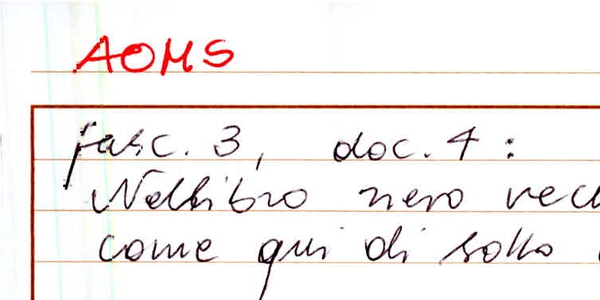 AOMS
fasc. 3, doc. 4:
Nel libro nero vecc
come qui di sotto